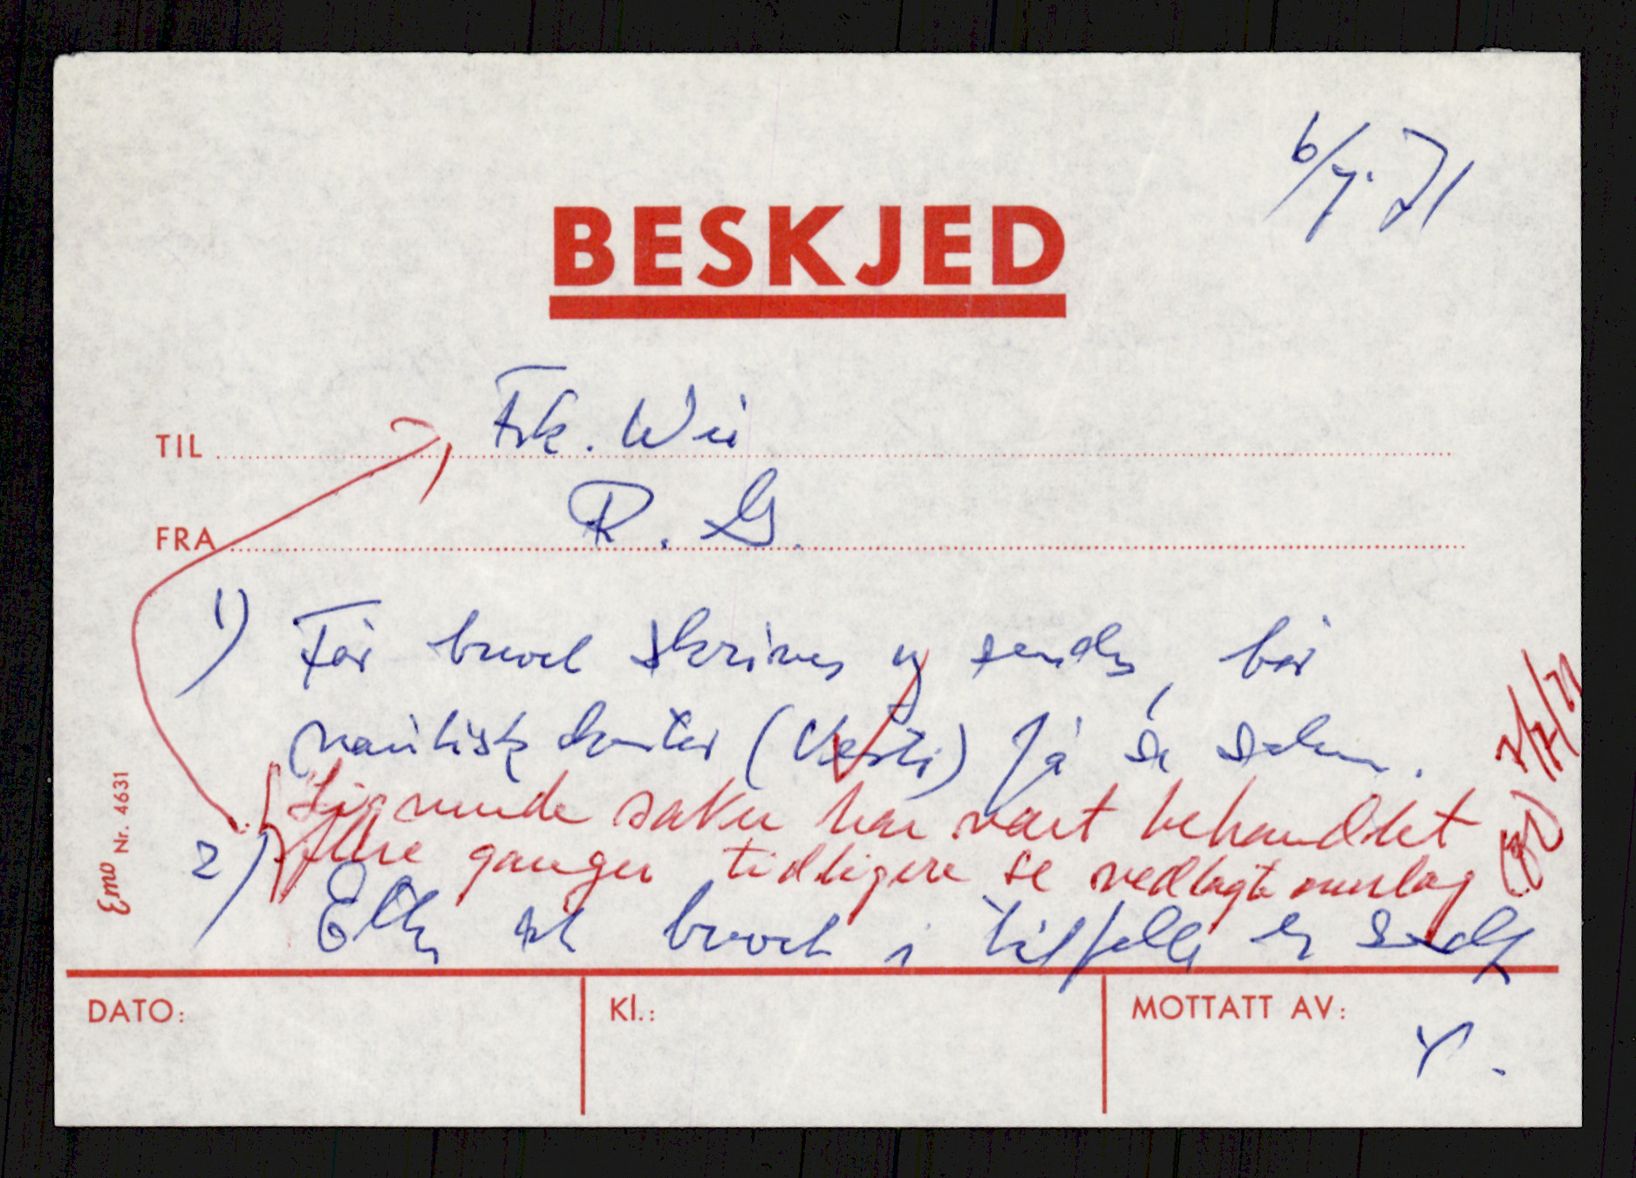 6/7.71
BESKJED
TIL Frk. Wii
FRA R. G.
1) Før brevet skrives og sendes, bør
nautisk kontor () få se saken.
Lignende saker har vært behandlet
flere ganger tidligere se vedlagte omslag
7/7/71
2) Ellers et brevet i tilfelle
DATO:
Kl.:
MOTTATT AV:
Emo Nr. 4631